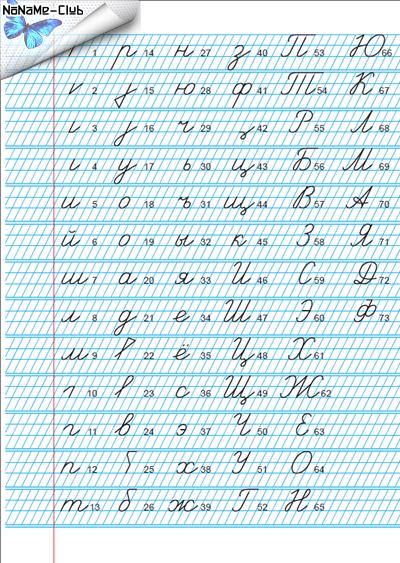 NoNaMe-Club
1 р 14 н 27 з 40 П 53 Ю 66
2 15 ю 28 ф 41 Т 54 К 67
3 16 ч 29 42 Р 55 Л 68
4 у 17 ь 30 ц 43 Б 56 М 69
и 5 о 18 ъ 31 щ 44 В 57 А 70
й 6 о 19 ы 32 к 45 З 58 Я 71
ш 7 а 20 я 33 И 46 С 59 Д 72
л 8 д 21 е 34 Ш 47 Э 60 Ф 73
м 9 22 ё 35 Ц 48 Х 61
10 23 с 36 Щ 49 Ж 62
г 11 в 24 э 37 Ч 50 Е 63
п 12 25 х 38 У 51 О 64
т 13 б 26 ж 39 Г 52 Н 65